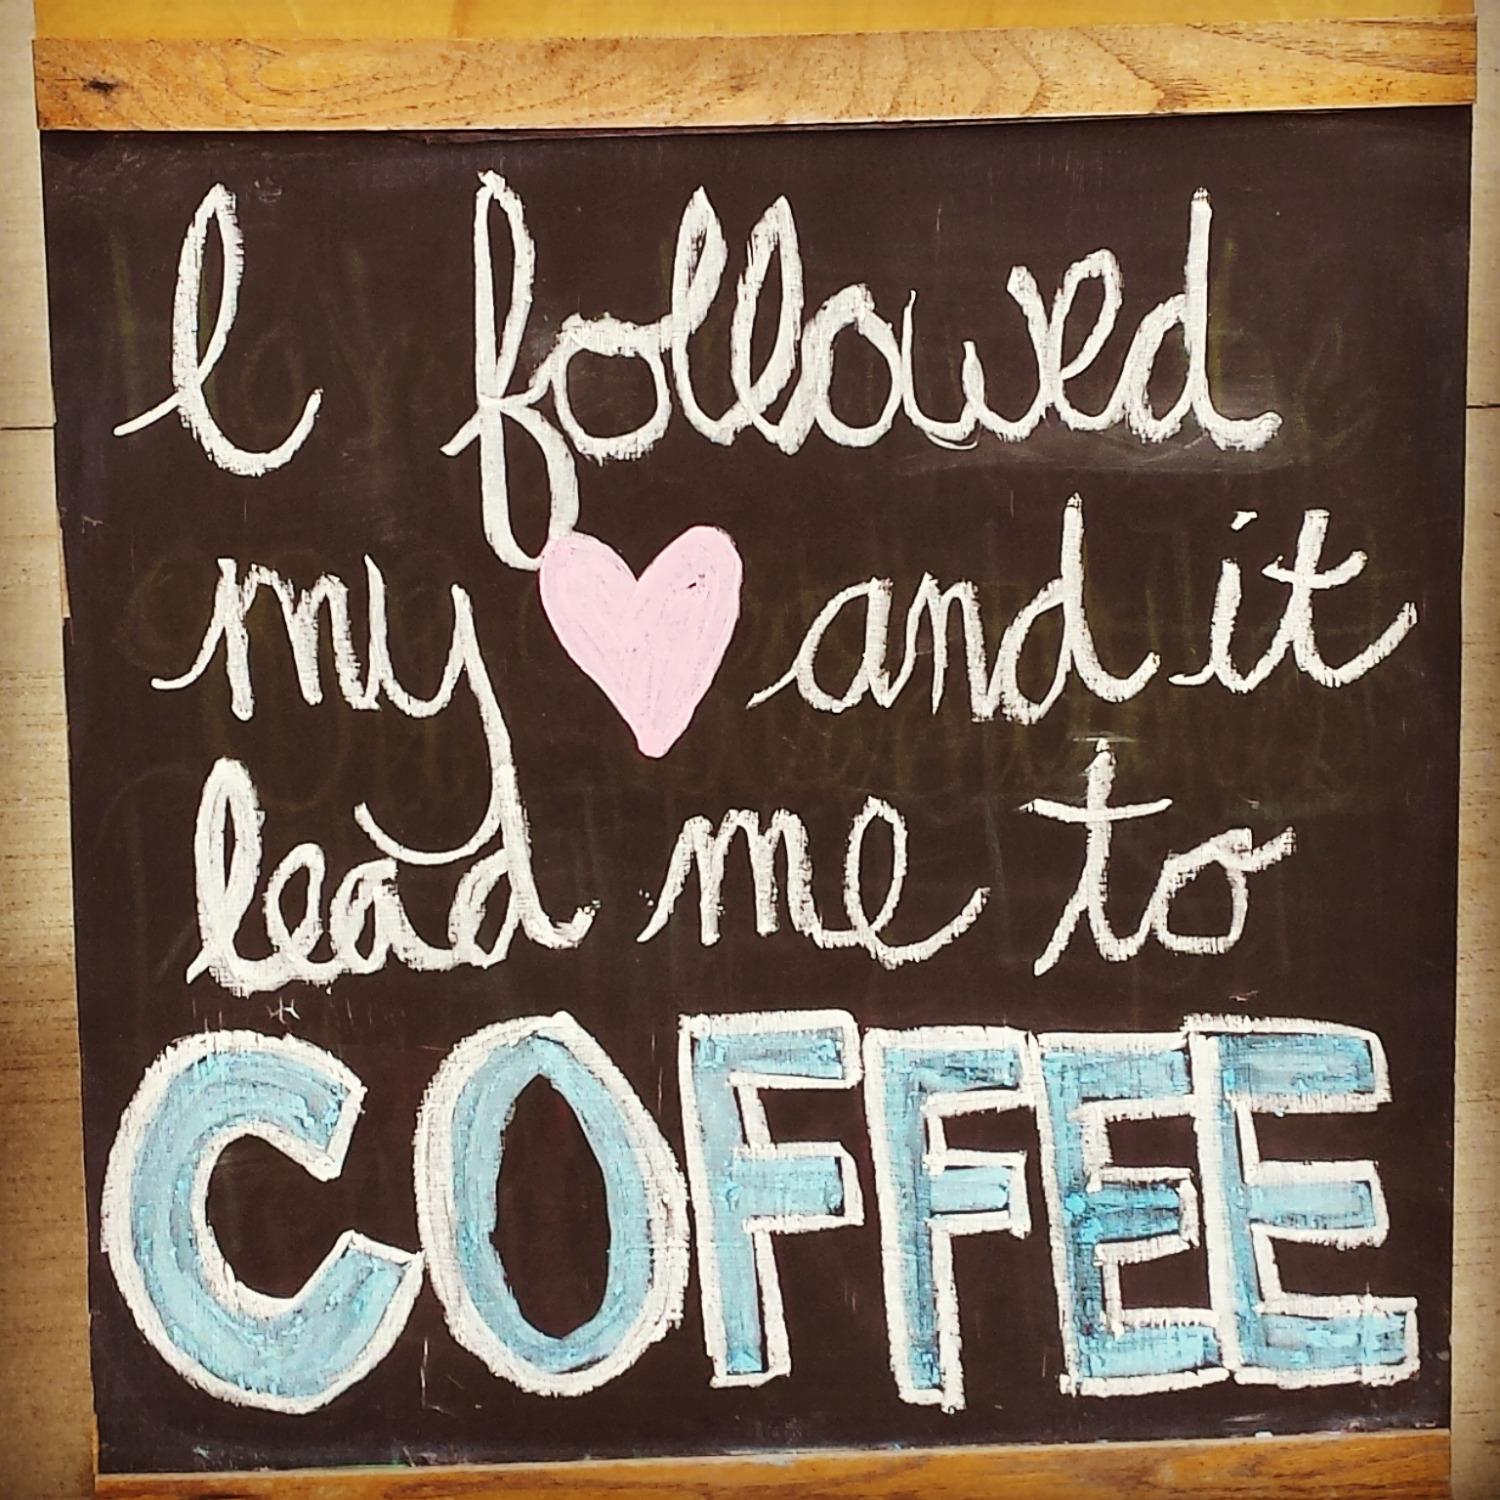 I followed
my ♥ and it
lead me to
COFFEE